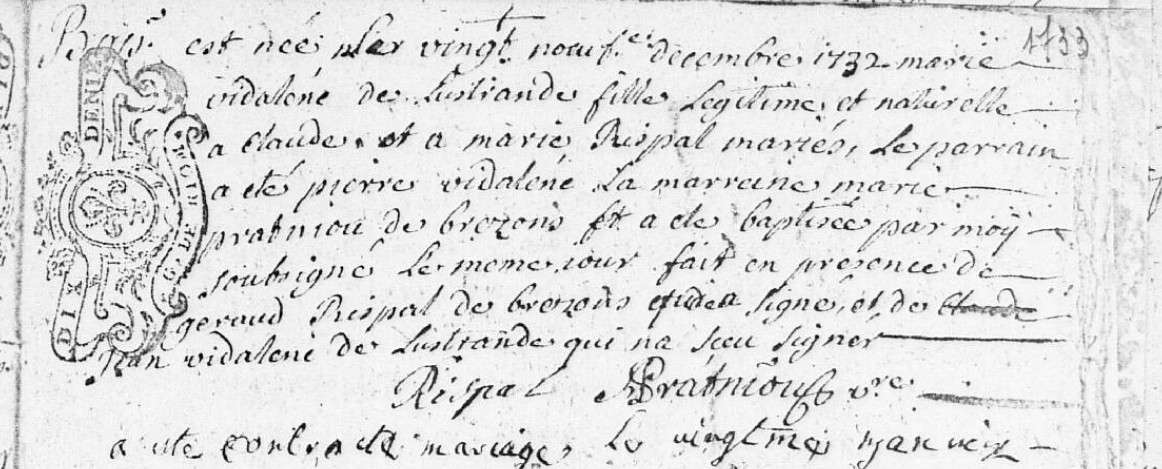 1733
Bap.e est née le vingt noeuf.e decembre 1732 marie
vidalenc de Lustrande fille Legitime et naturelle
a claude et a marie Rispal mariés, Le parrain
a eté pierre vidalenc La marreine marie
pratniou de brezons Et a ete baptisée par moÿ
soubsigné Le meme iour fait en presence de
geraud Rispal de brezons signé, et de claude
Jean vidalenc de Lustrande qui na sceu signer
Rispal Pratniou v.re
a ete contracte mariage, Le vingtme janvier
DIX DENIE
G. DE